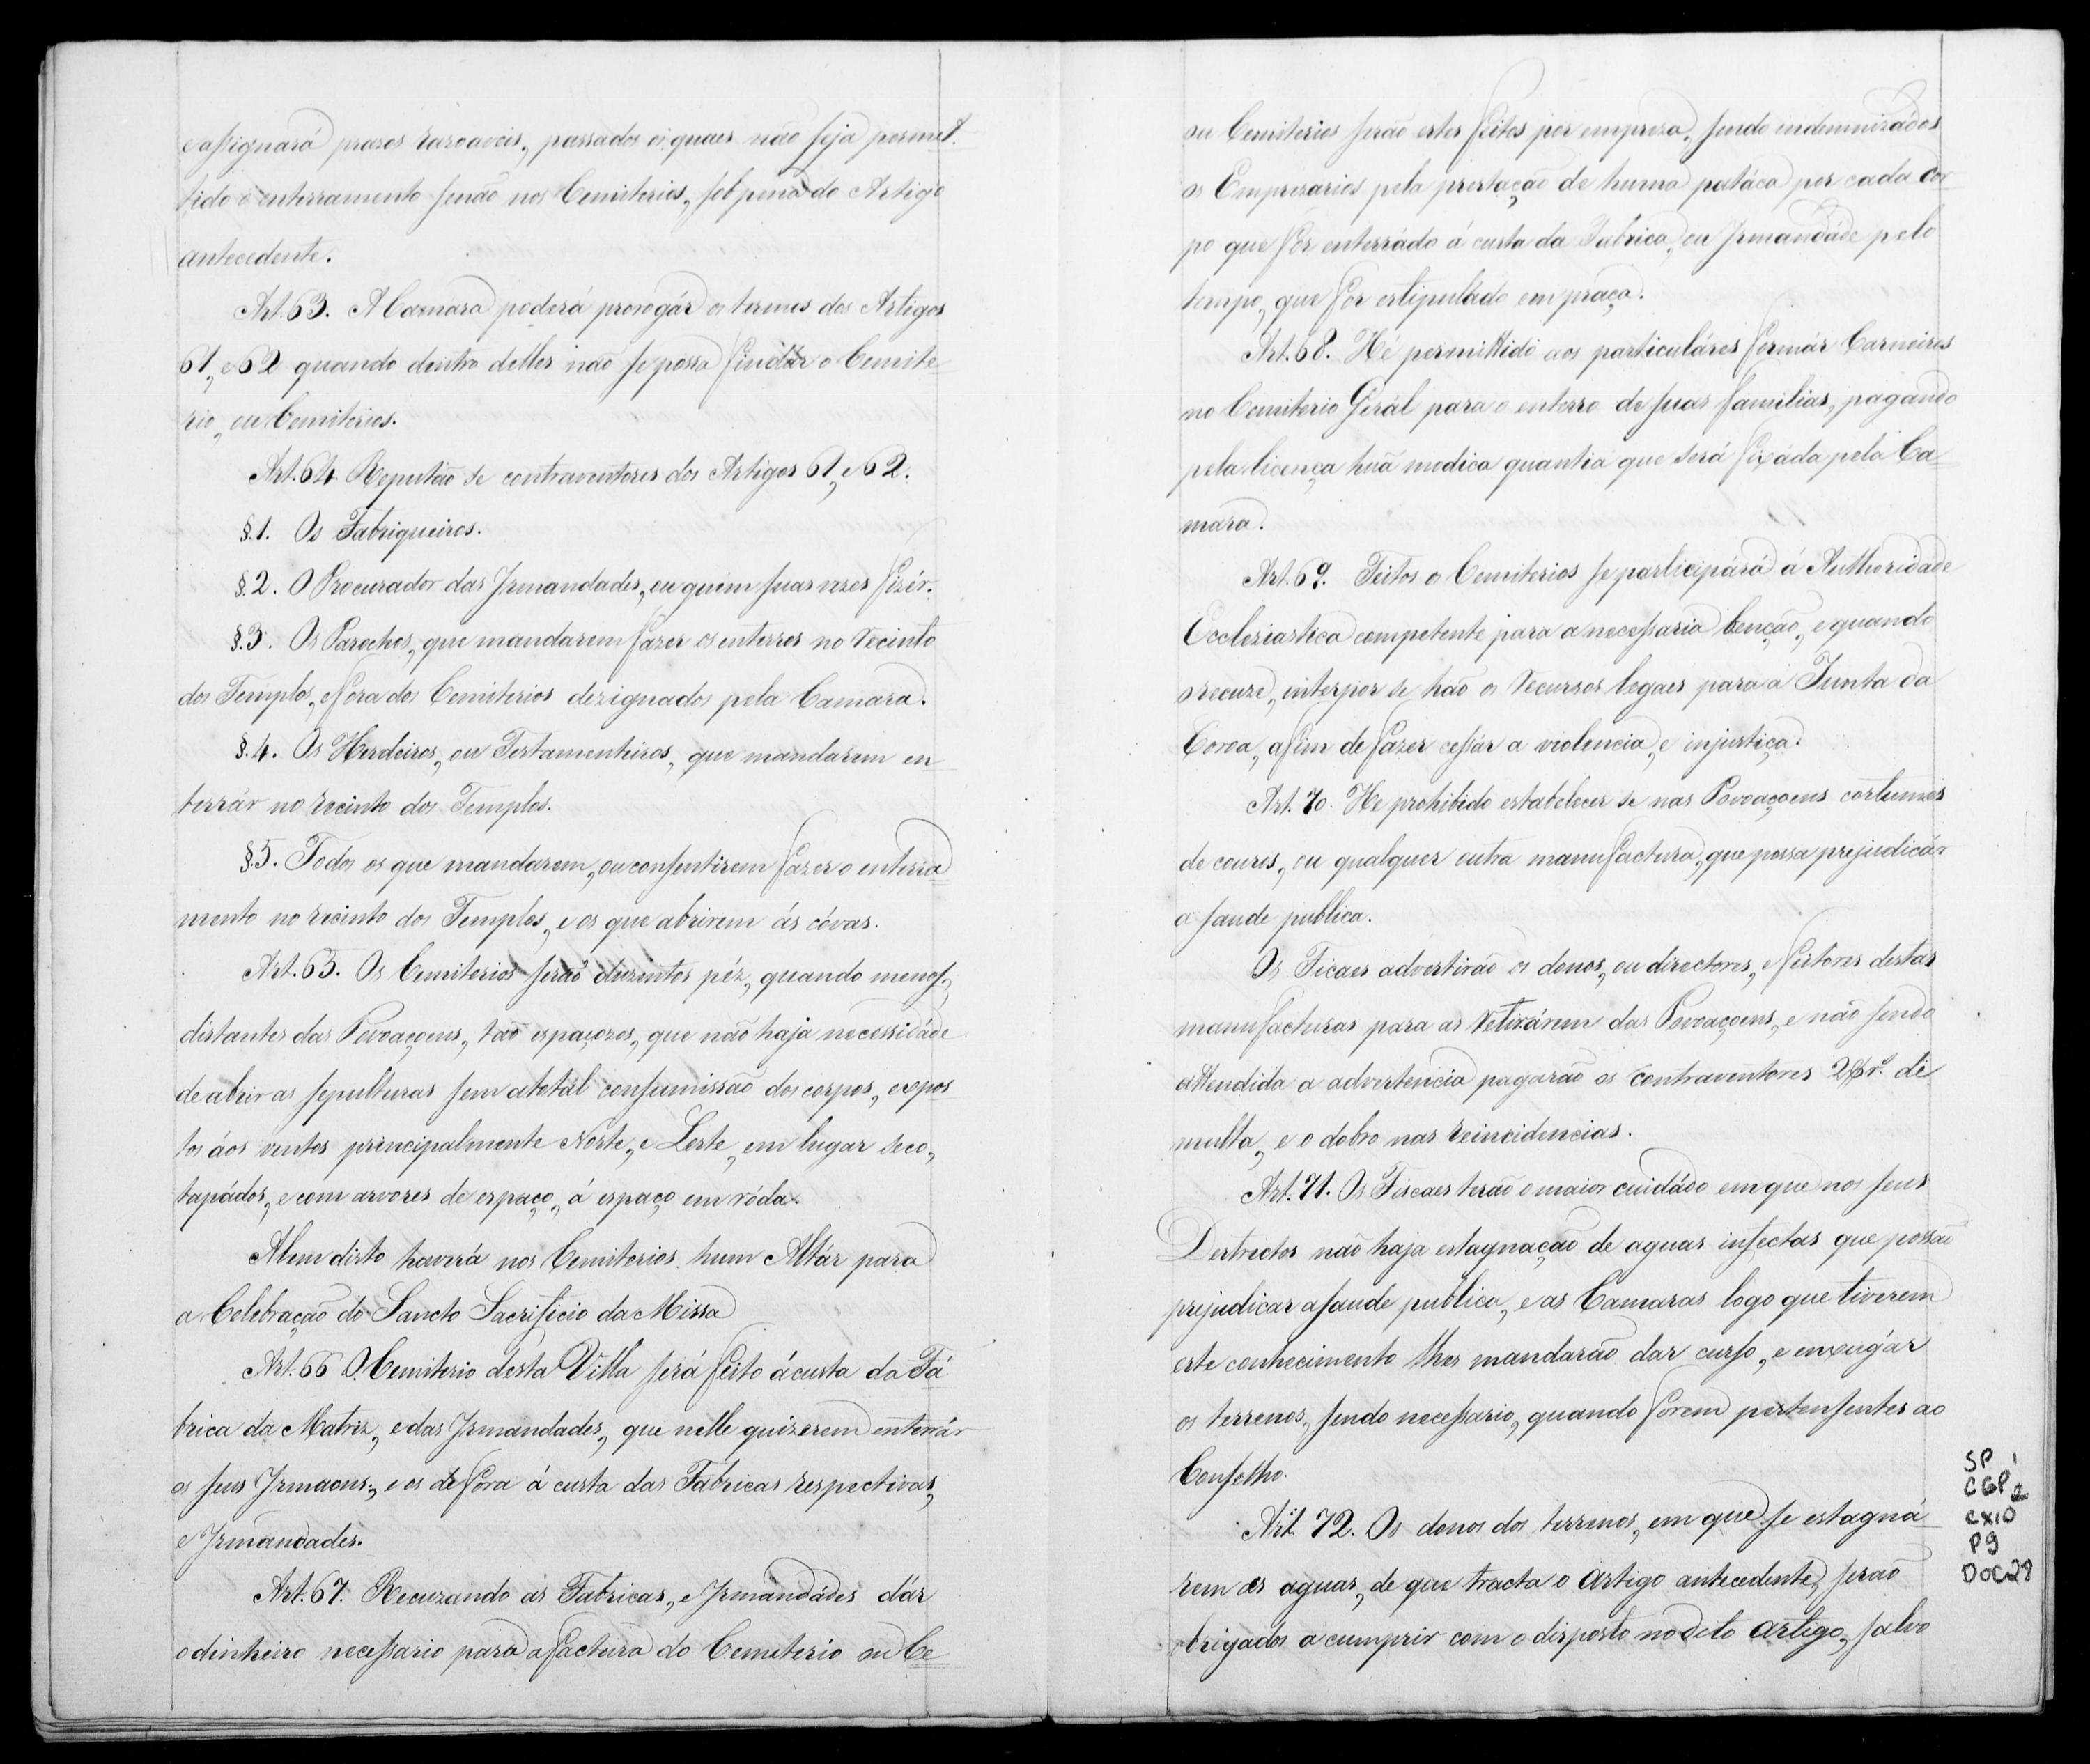 e assignará prazos razoaveis, passados os quaes não seja permet-
tido o enterramento senão nos Cemiterios, sob pena do Artigo
antecedente.
Art. 63. A Camara poderá prorogár os termos dos Artigos
61, e 62 quando dentro delles não se possa findar o Cemite-
rio, ou Cemiterios.
Art. 64. Reputão se contraventores dos Artigos 61, e 62.
§.1. Os Fabriqueiros.
§.2. O Procurador das Irmandades, ou quem suas vezes fizér.
§.3. Os Parochos, que mandarem fazer os enterros no recinto
dos Templos, e fora dos Cemiterios dezignados pela Camara.
§.4. Os Herdeiros, ou Testamenteiros, que mandarem en-
terrár no recinto dos Templos.
§.5. Todos os que mandarem, ou consentirem fazer o enterra-
mento no recinto dos Templos, e os que abrirem ás cóvas.
Art. 65. Os Cemiterios serão duzentos péz, quando menos,
distantes das Povoaçoens, tão espaçozos, que não haja necessidáde
de abrir as sepulturas sem a totál consumissão dos corpos, expos-
tos áos ventos principalmente Norte, e Leste, em lugar seco,
tapádos, e com arvores de espaço, á espaço em róda.
Alem disto haverá nos Cemiterios hum Altár para
a Celebração do Sancto Sacrificio da Missa
Art. 66 O Cemiterio desta Villa será feito á custa da Fá-
brica da Matriz, e das Irmandades, que nelle quizerem enterrár
os seus Irmaons, e os de fora á custa das Fabricas respectivas,
e Irmandades.
Art. 67. Recuzando ás Fabricas, e Irmandádes dár
o dinheiro necessario para a factura do Cemiterio ou Ce-
ou Cemiterios serão estes feitos por empreza, sendo indemnizados
os Emprezarios pela prestação de huma patáca por cada cor-
po que fôr enterrádo á custa da Fabrica, ou Irmandáde pelo
tempo, que fôr estipulado em praça.
Art. 68. Hé permittido aos particuláres formár Carneiros
no Cemiterio Gerál para o enterro de suas familias, pagando
pela licença huã modica quantia que será fixáda pela Ca-
mara.
Art. 69. Feitos os Cemiterios se participárá á Authoridade
Ecclesiastica competente para a necessaria benção, e quando
o recuze, interpor se hão os recursos legaes para a Junta da
Coroa, afim de fazer cessár a violencia, e injustiça.
Art. 70. He prohibido estabelecer se nas Povoaçoens cortumes
de couros, ou qualquer outra manufactura, que possa prejudicár
a saude publica.
Os Ficaes advertirão os donos, ou directores, e feitores destas
manufacturas para as retirárem das Povoaçoens, e não sendo
attendida a advertencia pagarão os contraventores 2$rs. de
multa, e o dobro nas reincidencias.
Art. 71. Os Fiscaes terão o maior cuidádo em que nos seus
Destrictos não haja estagnação de aguas infectas que possão
prejudicar a saude publica, e as Camaras logo que tiverem
este conhecimento lhes mandarão dar curso, e enxugár
os terrenos, sendo necessario, quando forem pertensentes ao
Conselho.
Art. 72. Os donos dos terrenos, em que se estagná-
rem as aguas, de que tracta o artigo antecedente, serão
obrigados a cumprir com o disposto no dito artigo, salvo
SP 1
CGP 2
CX10
P9
DOC28